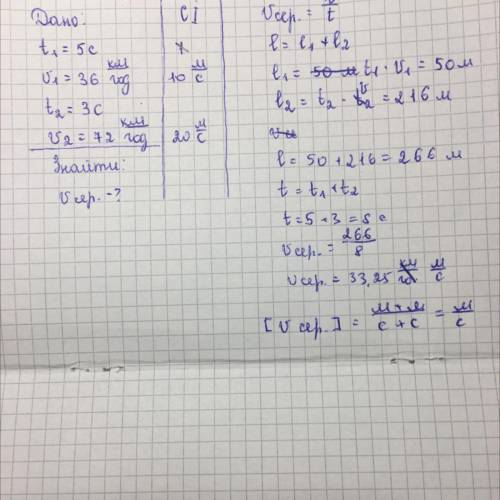 Дано:
СІ
t₁ = 5с
v₁ = 36 км/год
10 м/с
t₂ = 3с
v₂ = 72 км/год
20 м/с
Знайти:
v сер. - ?
v сер. = l/t
l = l₁ + l₂
l₁ = t₁ · v₁ = 50 м
l₂ = t₂ · v₂ = 216 м
l = 50 + 216 = 266 м
t = t₁ + t₂
t = 5 + 3 = 8 с
v сер. = 266/8
v сер. = 33,25 м/с
[v сер.] = м + м/с + с = м/с